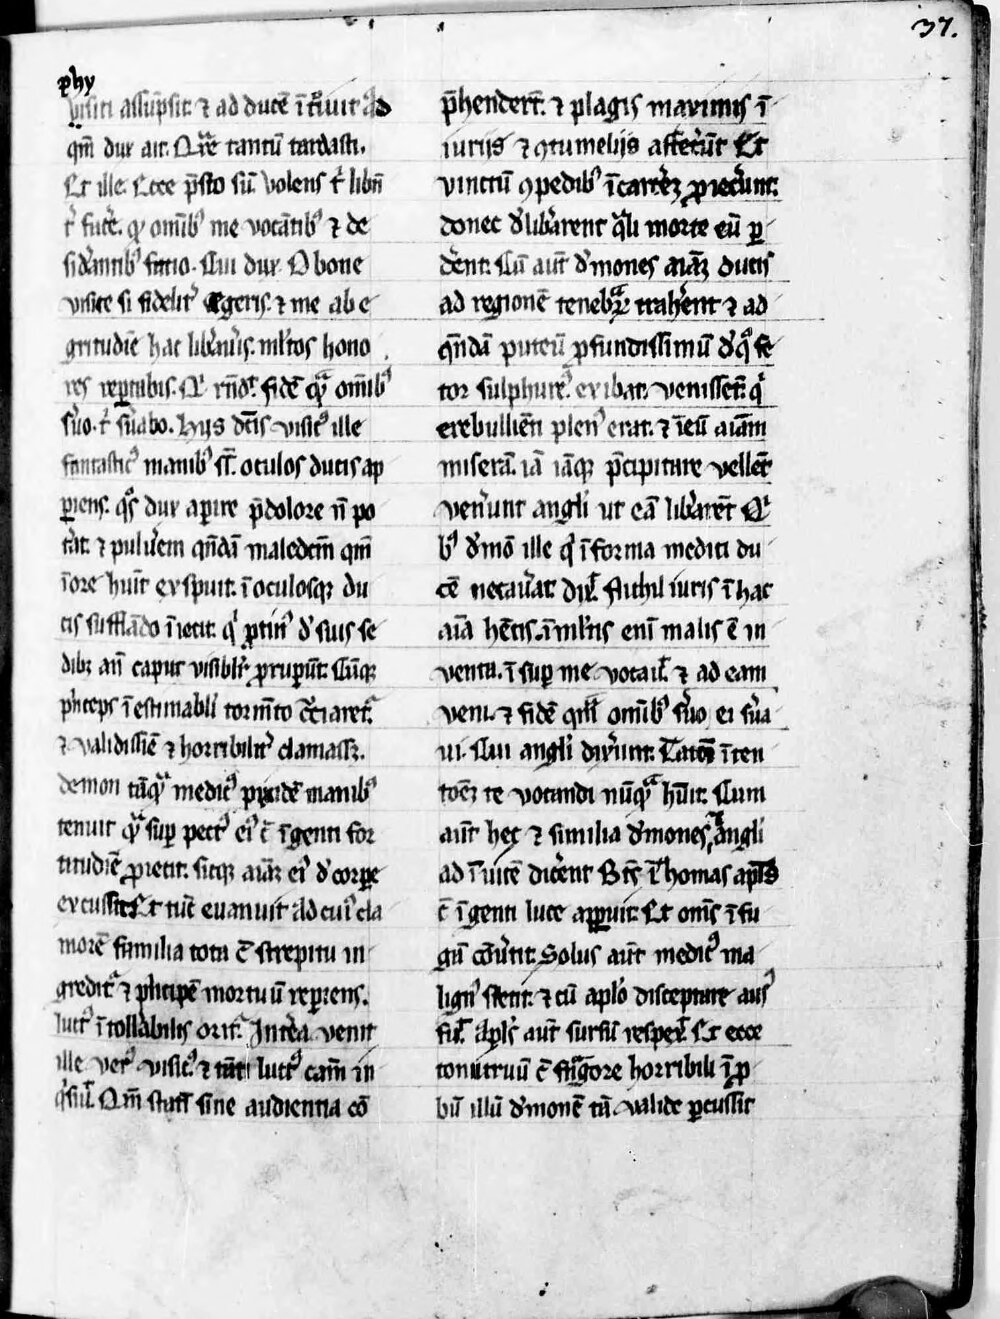 37.
phy
visici assūpsit. ⁊ ad ducē ītͥuit Ad
qm̄ dux ait. Qͣre tantū tardasti.
Et ille. Ecce p̄sto sū. volens t̄ libn̄
t̄ fuc̄e. qꝛ om̄ibꝰ me vocātibꝰ ⁊ de
sid̄antibꝰ
Cui dux. O bone
visice si fidelit̄ egeris. ⁊ me ab e
gritudīe hac lib̄nu̓is. ml̓tos hono
res
fidē qͣ om̄ibꝰ
s̓uo. t̄ s̓uabo. Hijs dc̄is visicꝰ ille
fantasticꝰ manibꝰ st̄. oculos ducis ap
ꝑiens. qͦs dux aꝑire p̄dolore n̄ po
rat. ⁊ pulu̓em qn̄dā maledcm̄ qm̄
īore huīt exspuit. ī oculosqꝫ du
cis sufflādo īiecit. qͥ ꝓtinꝰ d̓ suis se
dibꝫ an̄ caput visiblr̓ ꝓruꝑūt. Cūqꝫ
p̓nceps īestimabli torm̄to c̄c̓iaret̄.
⁊ validissīe ⁊ horribilit̓ clamass̄.
demon tāqͣ medicꝰ
manibꝰ
tenuit qͣ suꝑ pectꝰ eiꝰ c̄ īgenti for
titudīe ꝓiecit. sicqꝫ aīaꝫ eiꝰ d̓ corpe
excussit. Et tūc euanuit Ad cuiꝰ cla
morē familia tota c̄ strepitu in
gredit̄ ⁊ p̓ncipē mortuū reꝑiens.
luctꝰ ītollabilis orit̄. Int̓ea venit
ille verꝰ visicꝰ. ⁊ tāti luctꝰ cam̄ in
q̓siuī. Om̄ staū sine audientia cō
p̄henderūt. ⁊ plagis maximis ī
iurijs ⁊ ꝯtumelijs affec̓ūt Et
vinctū ꝯpedibꝰ ī carc̓eꝫ ꝓiec̓unt.
donec d̓lib̓arent q̓li morte eū ꝑ
d̓ent. Cū aūt d̓mones aīaꝫ ducis
ad regionē tenebraꝝ trah̓ent ⁊ ad
qn̄dā puteū ꝓfundissimū d̓ qͦ fe
tor sulphureꝰ exibat. venisset̄. qͥ
erebulliēti plenꝰ erat. ⁊ ī eū aīam
miserā. iā iāqꝫ p̄cipitare vellēt
ven̓unt angli ut eā lib̓arēt Qi
bꝰ d̓mō ille qͥ ī forma medici du
cē necau̓at. dix̄. Nichil iuris ī hac
aīa hētis. ī ml̓tis enī malis ē in
venta. ī suꝑ me vocauī. ⁊ ad eam
veni. ⁊ fidē
om̄ibꝰ s̓uo ei s̓ua
ui. Cui angli dix̓unt. Talē īten
toēꝫ te vocandi nūqͣ h̓uit. Cum
aūt hec ⁊ similia d̓mones, angli
ad īuicē dic̓ent Btūs Thomas apl̄s
c̄ īgenti luce apꝑuit. Et om̄s ī fu
gā c̄ūtit. Solus aūt medicꝰ ma
lignꝰ stetit. ⁊ cū aplo disceptare ausꝰ
fuī. Apl̓s aūt sursū respex̄. Et ecce
tonitruū c̄ fragore horribili īꝓ
bū illū d̓monē tā valide ꝑcussit